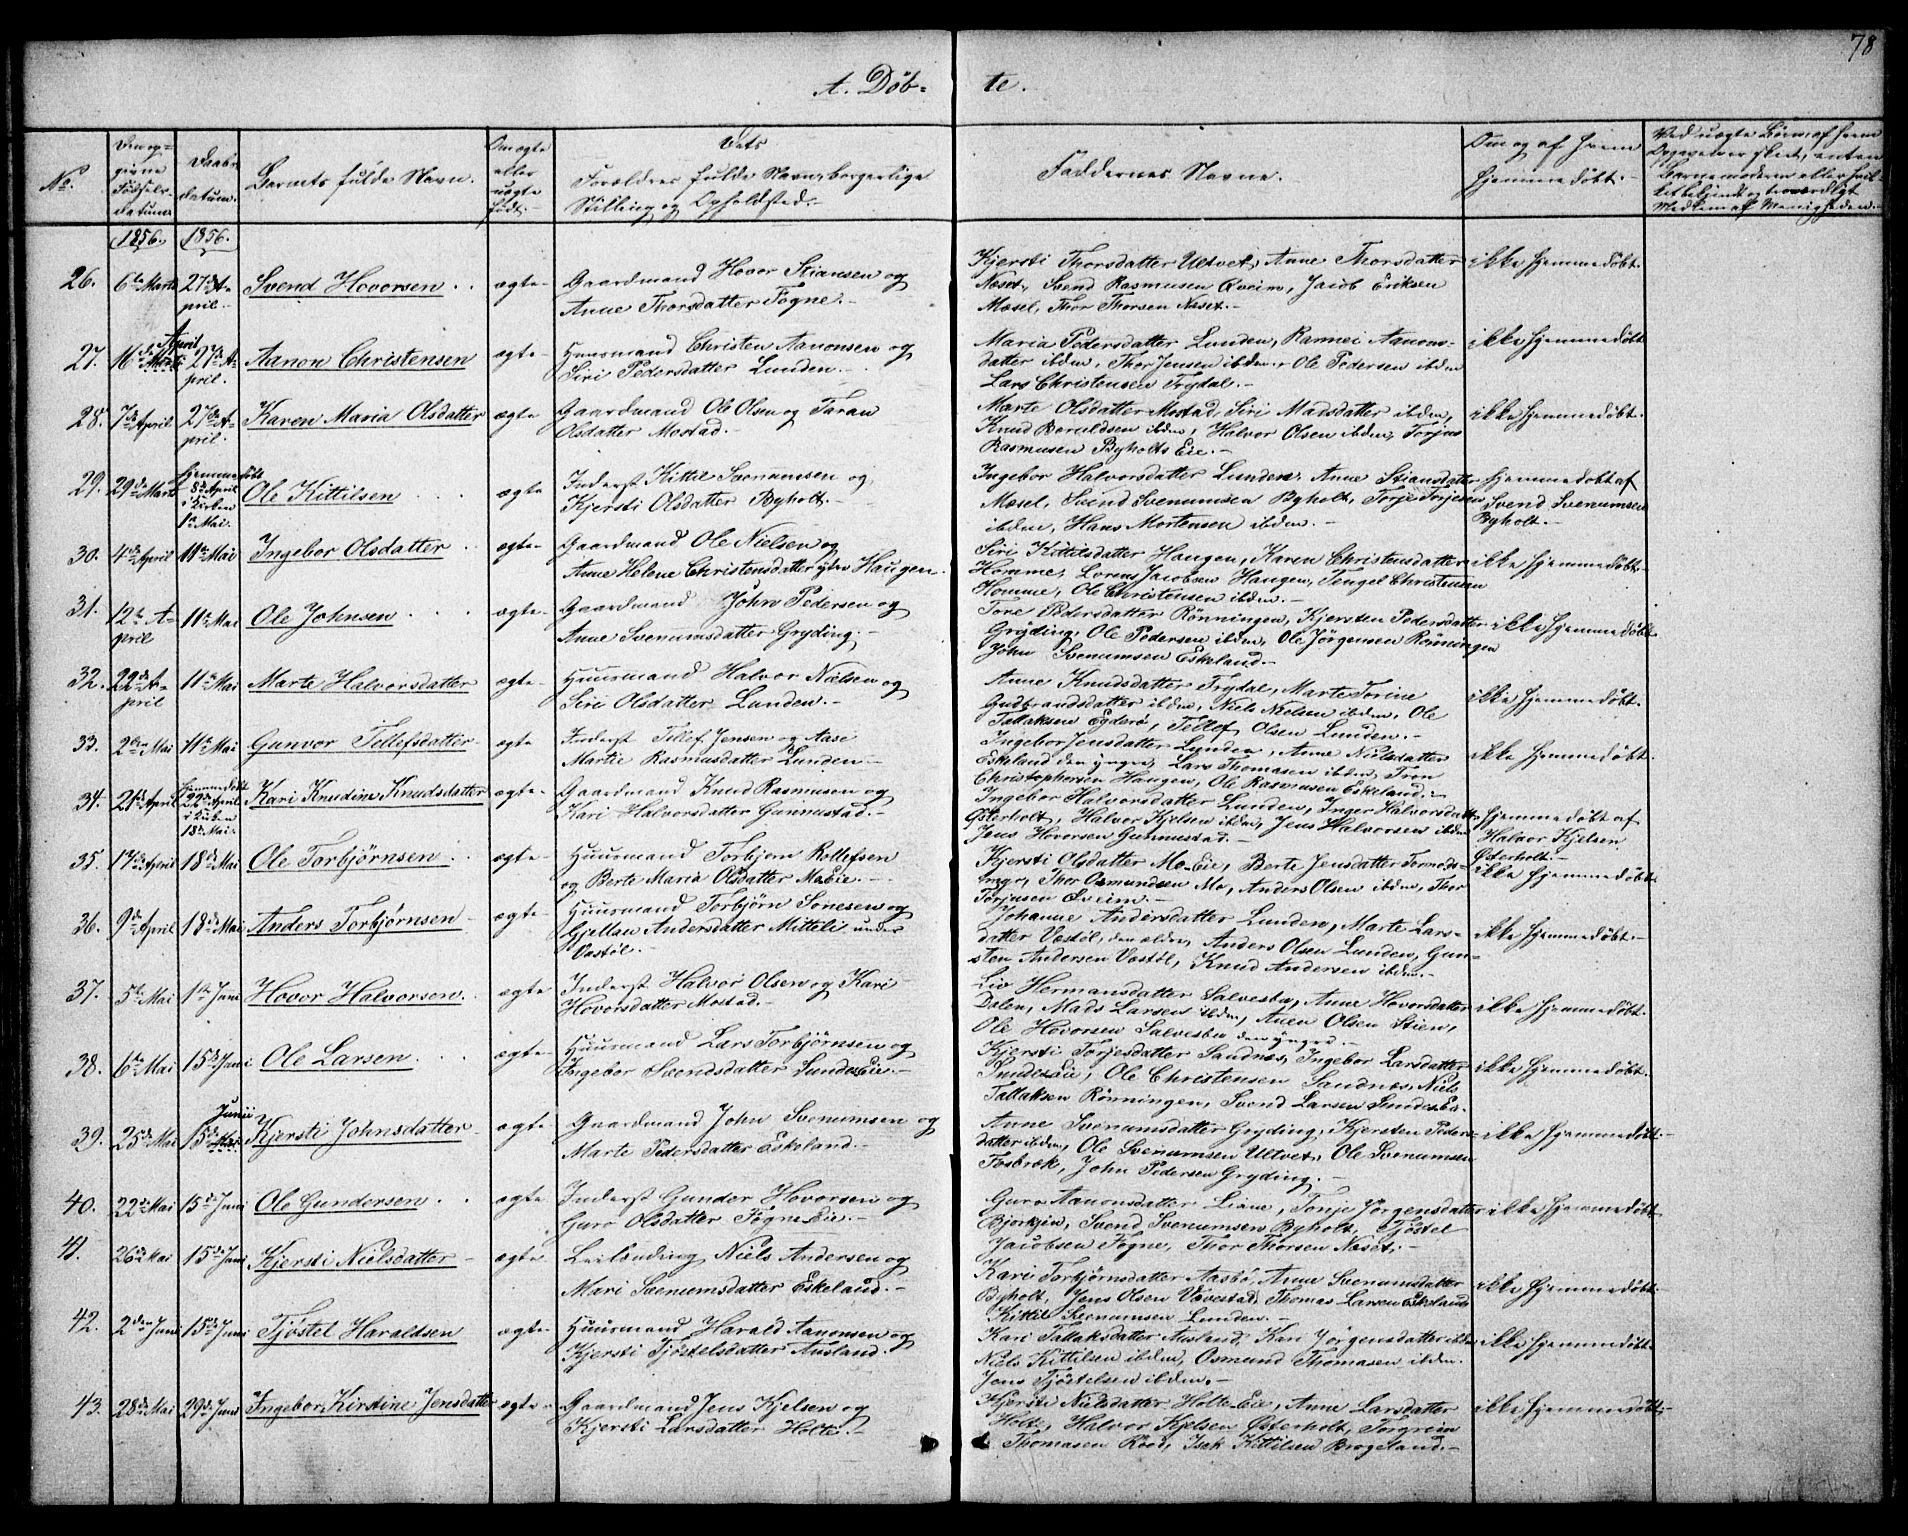 78
A. Döb-
te.
No.
Den op-
givne
Födsels-
datum.
Daabs-
datum.
Barnets fulde Navn.
Om ægte
eller
uægte
født.-
Dets
Forældres fulde Navn, borgerlige
Stilling og Opholdsted.-
Faddernes Navne.
Om og af hvem
hjemmedöbt.-
Ved uægte Börn, af hvem
Opgivelser skeet, enten
Barnemoderen eller hvil-
ket bekjendt og troværdigt
Medlem af Menigheden.-
1856. 1856.
26. 6te Marts 27de A-
pril. Svend Hovorsen ægte- Gaardmand Hovor Stiansen og
Anne Thorsdatter Fögne.-
Kjersti Thorsdatter Ultvet, Anne Thorsdatter
Næset, Svend Rasmusen Qveim, Jacob Eriksen
Mæsel, Thor Thorsen Næset.-
ikke hjemmedöbt.
27. 16de April Marts 27de A-
pril. Aanon Christensen ægte- Huusmand Christen Aanonsen og
Siri Pedersdatter Lunden.-
Maria Pedersdatter Lunden, Rannei Aanons-
datter ibdm, Thor Jensen ibdm, Ole Pedersen ibdm
Lars Christensen Trydal.-
ikke hjemmedöbt
28. 7de April 27de A-
pril. Karen Maria Olsdatter ægte Gaardmand Ole Olsen og Taran
Olsdatter Mostad.-
Marte Olsdatter Mostad, Siri Madsdatter ibdm,
Knud Boruldsen ibdm, Halvor Olsen ibdm, Torjus
Rasmusen Byholts Eie.-
ikke hjemmedöbt.
29. 29de Marts hjemmedöbt
8de April
i Kirken
1te Mai. Ole Kittilsen ægte Inderst Kittil Svenumsen og
Kjersti Olsdatter Byholt.-
Ingebor Halvorsdatter Lunden, Anne Stiansdatter
Mæsel, Svend Svenumsen Byholt, Torje Torjesen
ibdm, Hans Mortensen ibdm.-
hjemmedöbt af
Svend Svenumsen
Byholt.-
30. 4de April 11te Mai Ingebor Olsdatter ægte- Gaardmand Ole Nielsen og
Anne Helene Christensdatter ytre Haugen.
Siri Kittilsdatter Haugen, Karen Christensdatter
Homme, Lorens Jacobsen Haugen, Tengel Christensen
Homme, Ole Christensen ibdm.-
ikke hjemmedöbt.
31. 12te A-
pril 11te Mai Ole Johnsen ægte- Gaardmand John Pedersen og
Anne Svenumsdatter Gryding.-
Tone Pedersdatter Rönningen, Kjersten Pedersdatter
Gryding, Ole Pedersen ibdm, Ole Jörgensen Rönningen
John Svenumsen Eskeland.-
ikke hjemmedöbt
32. 22de A-
pril 11te Mai Marte Halvorsdatter ægte- Huusmand Halvor Nielsen og
Siri Olsdatter Lunden.-
Anne Knudsdatter Trydal, Marte Torine
Gudbrandsdatter ibdm, Niels Nielsen ibdm, Ole
Tallaksen Egderö, Tellef Olsen Lunden.-
ikke hjemmedöbt.
33. 2den Mai 11te Mai Gunvor Tellefsdatter ægte Inderst Tellef Jensen og Aase
Martie Rasmusdatter Lunden.-
Ingebor Jensdatter Lunden, Anne Nielsdatter
Eskeland den yngre, Lars Thomasen ibdm, Tron
Christophersen Haugen, Ole Rasmusen Eskeland.-
ikke hjemmedöbt.
34. 21de April hjemmedöbt
22de April
i Kirken
18de Mai. Kari Knudine Knudsdatter ægte- Gaardmand Knud Rasmusen og
Kari Halvorsdatter Gunmestad.-
Ingebor Halvorsdatter Lunden, Inger Halvorsdatt.
Østerholt, Halvor Kjelsen ibdm, Jens Halvorsen ibdm
Jens Hovorsen Gunmestad.-
hjemmedöbt af
Halvor Kjelsen
Østerholt.-
35. 17de April 18de Mai Ole Torbjørnsen ægte- Huusmand Torbjørn Rollefsen
og Berte Maria Olsdatter Mo Eie.-
Kjersti Olsdatter Mo Eie, Berte Jensdatter
Thor Osmundsen Mo, Anders Olsen ibdm, Thor
Torjusen Qveim.-
ikke hjemmedöbt.
36. 9de April 18de Mai Anders Torbjørnsen ægte- Huusmand Torbjørn Sonesen og
Gjellau Andersdatter Mitteli under
Vastöl.
Johanne Andersdatter Lunden, Marte Lars-
datter Vastöl, den ældre, Anders Olsen Lunden, Gun-
sten Andersen Vastöl, Knud Andersen ibdm.-
ikke hjemmedöbt.-
37. 5te Mai 1te Juni Hovor Halvorsen ægte Inderst Halvor Olsen og Kari
Hovorsdatter Mostad.-
Liv Hermansdatter Salvesbu, Anne Hovorsdatter
Dalen, Mads Larsen ibdm, Aven Olsen Stien,
Ole Hovorsen Salvesbu den yngre.-
ikke hjemmedöbt.
38. 6te Mai 15de Juni Ole Larsen ægte- Huusmand Lars Torbjørnsen og
Ingebor Svendsdatter Sundes Eie.-
Kjersti Torjesdatter Sandnæs, Ingebor Larsdatter
Sundes Eie, Ole Christensen Sandnæs, Niels
Tallaksen Rönningen, Svend Larsen Sundes Ei.
ikke hjemmedöbt.
39. 25de Mai 15de Junii Mai Kjersti Johnsdatter ægte- Gaardmand John Svenumsen og
Marte Pedersdatter Eskeland.-
Anne Svenumsdatter Gryding, Kjersten Peders-
datter ibdm, Ole Svenumsen Ultvet, Ole Svenumsen
Fosbræk, John Pedersen Gryding.-
ikke hjemmedöbt.-
40. 22de Mai 15de Juni Ole Gundersen ægte Inderst Gunder Hovorsen og
Guro Olsdatter Fögne Eie.-
Guro Aanonsdatter Liane, Tonje Jörgensdatter
Bjorkjen, Svend Svenumsen Byholt, Tjöstel
Jacobsen Fögne, Thor Thorsen Næset.-
ikke hjemmedöbt
41. 26de Mai 15de Juni Kjersti Nielsdatter ægte Leilænding Niels Andersen og
Mari Svenumsdatter Eskeland.-
Kari Torbjørnsdatter Aasbö, Anne Svenumsdatter
Byholt, Jens Olsen Vævestad, Thomas Larsen Eskeland
Kittil Svenumsen Lunden.-
ikke hjemmedöbt.-
42. 2den Juni 15de Juni Tjöstel Haraldsen ægte- Huusmand Harald Aanonsen og
Kjersti Tjöstelsdatter Ausland.
Kari Tallaksdatter Ausland, Kari Jörgensdatter ibdm
Niels Kittilsen ibdm, Osmund Thomasen ibdm.
Jens Tjöstelsen ibdm.-
ikke hjemmedöbt.
43. 28de Mai 29de Juni Ingebor Kirstine Jensdatter ægte- Gaardmand Jens Kjelsen og
Kjersti Larsdatter Holte.-
Kjersti Nielsdatter Holte Eie, Anne Larsdatter
Holte, Halvor Kjelsen Østerholt, Torgrim
Thomasen Röed, Isak Kittilsen Brogeland.-
ikke hjemmedöbt.-